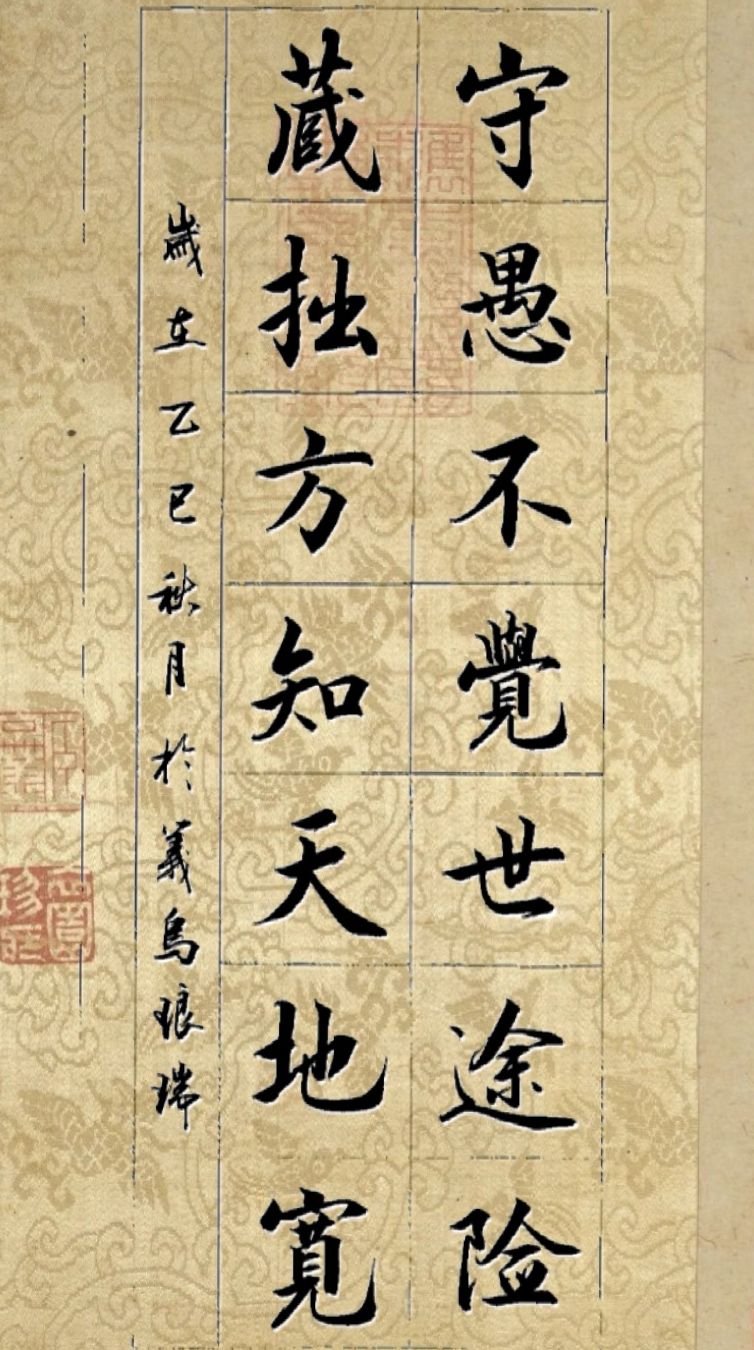 守愚不覺世途险
蔵拙方知天地寬
歲在乙巳秋月於義烏琅瑞